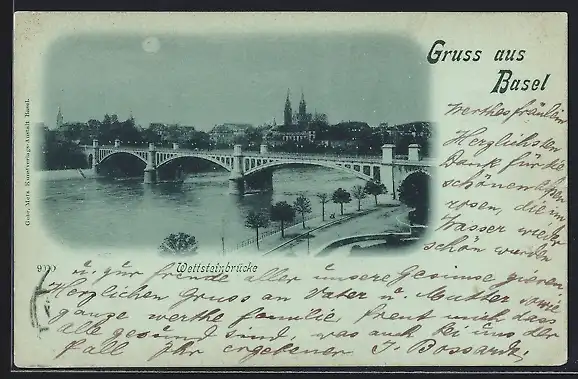 Gruss aus
Basel
Werthes fräulein
Herzlichsten
Dank für die
schönen
rosen, die im
Wasser wieder
schön wurden
Gebr. Metz Kunstverlags-Anstalt Basel.
Wettsteinbrücke
u. zur freude aller unsere Gesimse zieren
Herzlichen Gruss an Vater u. Mutter sowie
ganze werthe familie, freut mich dass
alle gesund sind, was auch bei uns der
fall Ihr ergebener J. Bossardt.